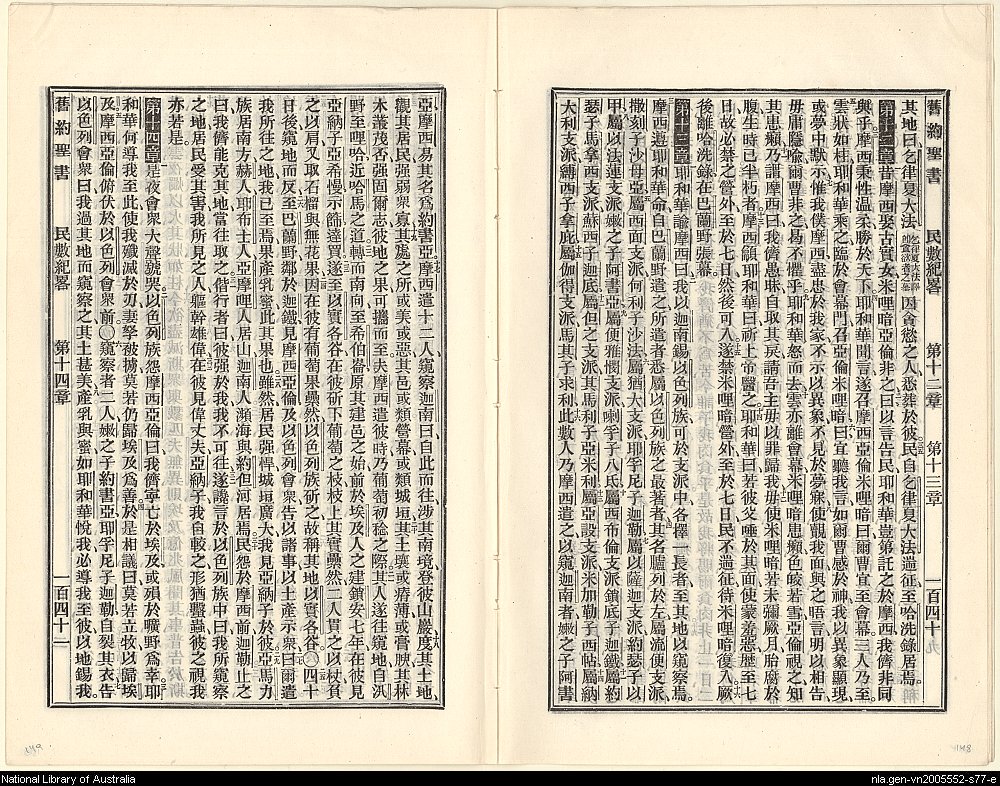 舊約聖書 民數紀畧 第十二章 第十三章 一百四十
其地曰乞律夏大法 因貪慾之人悉葬於彼民自乞律夏大法遄征至哈洗錄居焉
第十二章 昔摩西娶古實女米哩暗亞倫非之曰以言告民耶和華豈第託之於摩西我儕非同
與乎摩西秉性溫柔勝於天下耶和華聞言遂召摩西亞倫米哩暗曰爾曹宜至會幕三人乃至
雲狀如柱耶和華乘之臨於會幕門召亞倫米哩暗曰宜聽我言如爾曹感於神我以異象顯現
或夢中默示惟我僕摩西盡忠於我家不示以異象不見於夢寐使覿我面與之晤言明以相告
毋庸隱喩爾曹非之曷不懼乎耶和華怒而去雲亦離會幕米哩暗患癩色皎若雪亞倫視之知
其患癩乃謂摩西曰我儕愚昧自取其戾請吾主毋以罪歸我毋使米哩暗若未彌厥月胎腐於
腹生時已半朽者摩西籲耶和華曰祈上帝醫之耶和華曰若彼父唾於其面使蒙羞惡歷至七
日故必禁之營外至於七日然後可入遂禁米哩暗營外至於七日民不遄征待米哩暗復入厥
後離哈洗錄在巴蘭野張幕
第十三章 耶和華諭摩西曰我以迦南錫以色列族可於支派中各擇一長者至其地以窺察焉
摩西遵耶和華命自巴蘭野遣之所遣者悉屬以色列族之最著者其名臚列於左屬流便支派
撒刻子沙母亞屬西面支派何利子沙法屬猶大支派耶孚尼子迦勒屬以薩迦支派約瑟子以
甲屬以法蓮支派嫩之子阿書亞屬便雅憫支派喇孚子八氐屬西布倫支派瑣底子迦鐵屬約
瑟子馬拿西支派蘇西子迦底屬但之支派其馬利子亞米利屬亞設支派米加勒子西帖屬納
大利支派縛西子拿庇屬伽得支派馬其子求利此數人乃摩西遣之以窺迦南者嫩之子阿書
亞摩西易其名爲約書亞摩西遣十二人窺察迦南曰自此而往涉其南境登彼山巖度其土地
觀其居民强弱衆寡其處之所或美或惡其邑或類營幕或類城垣其土壤或瘠薄或膏腴其林
木叢茂否强固爾志彼地之果可攜而至夫摩西遣彼時乃葡萄初稔之際其人遂往窺地自汛
野至哩哈近哈馬之道轉而南向至希伯崙原其建邑之始前於埃及人之建鎖安七年在彼見
亞納子亞希慢示篩達買遂至以實各谷在彼斫下葡萄之枝枝上其實纍然二人貫之以杖負
之以肩又取石榴與無花果因在彼有葡萄果纍然以色列族斫之故稱其地以實各谷四十
日後窺地而反至巴蘭野鄰於迦鐵見摩西亞倫及以色列會衆告以諸事以土產示衆曰爾遣
我所往之地我已至焉果產乳蜜此其果也雖然居民强悍城垣廣大我見亞納子於彼亞馬力
族居南方赫人耶布士人亞摩哩人居山迦南人瀕海與約但河居焉民怨於摩西前迦勒止之
曰我儕能克其地當往取之偕行者曰彼强於我我不可往遂讒言於以色列族中曰我所窺察
之地居民受其害我所見之人軀幹雄偉在彼見偉丈夫亞納子我自較之形猶螽蟲彼之視我
亦若是
第十四章 是夜會衆大聲號哭以色列族怨摩西亞倫曰我儕寧亡於埃及或殞於曠野爲幸耶
和華何導我至此使我殲滅於刃妻孥被擄莫若仍歸埃及爲善於是相議曰莫若立牧以歸埃
及摩西亞倫俯伏於以色列會衆前窺察者二人嫩之子約書亞耶孚尼子迦勒自裂其衣告
以色列會衆曰我過其地而窺察之其土甚美產乳與蜜如耶和華悅我必導我至彼以地錫我
舊約聖書 民數紀畧 第十四章 一百四十
148
149
National Library of Australia
nla.gen-vn2005552-s77-e